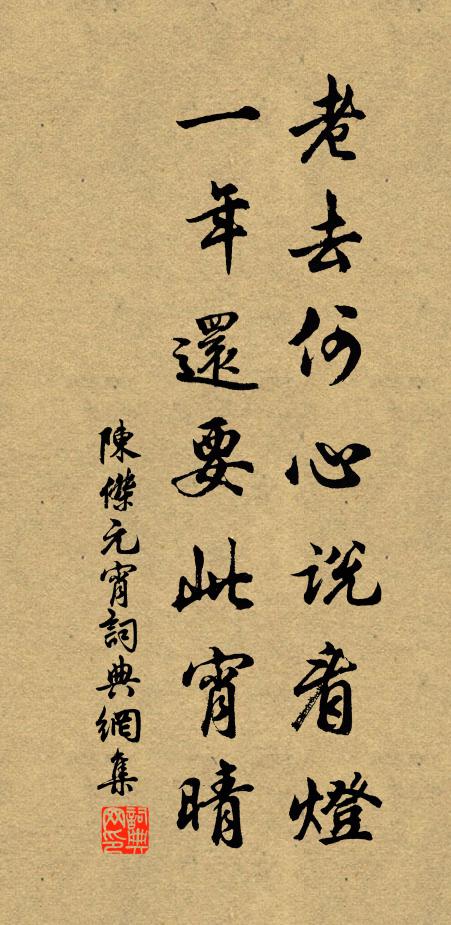 老去何心說看燈
一年還要此宵晴
陳傑元宵詞典網集
詞典网印